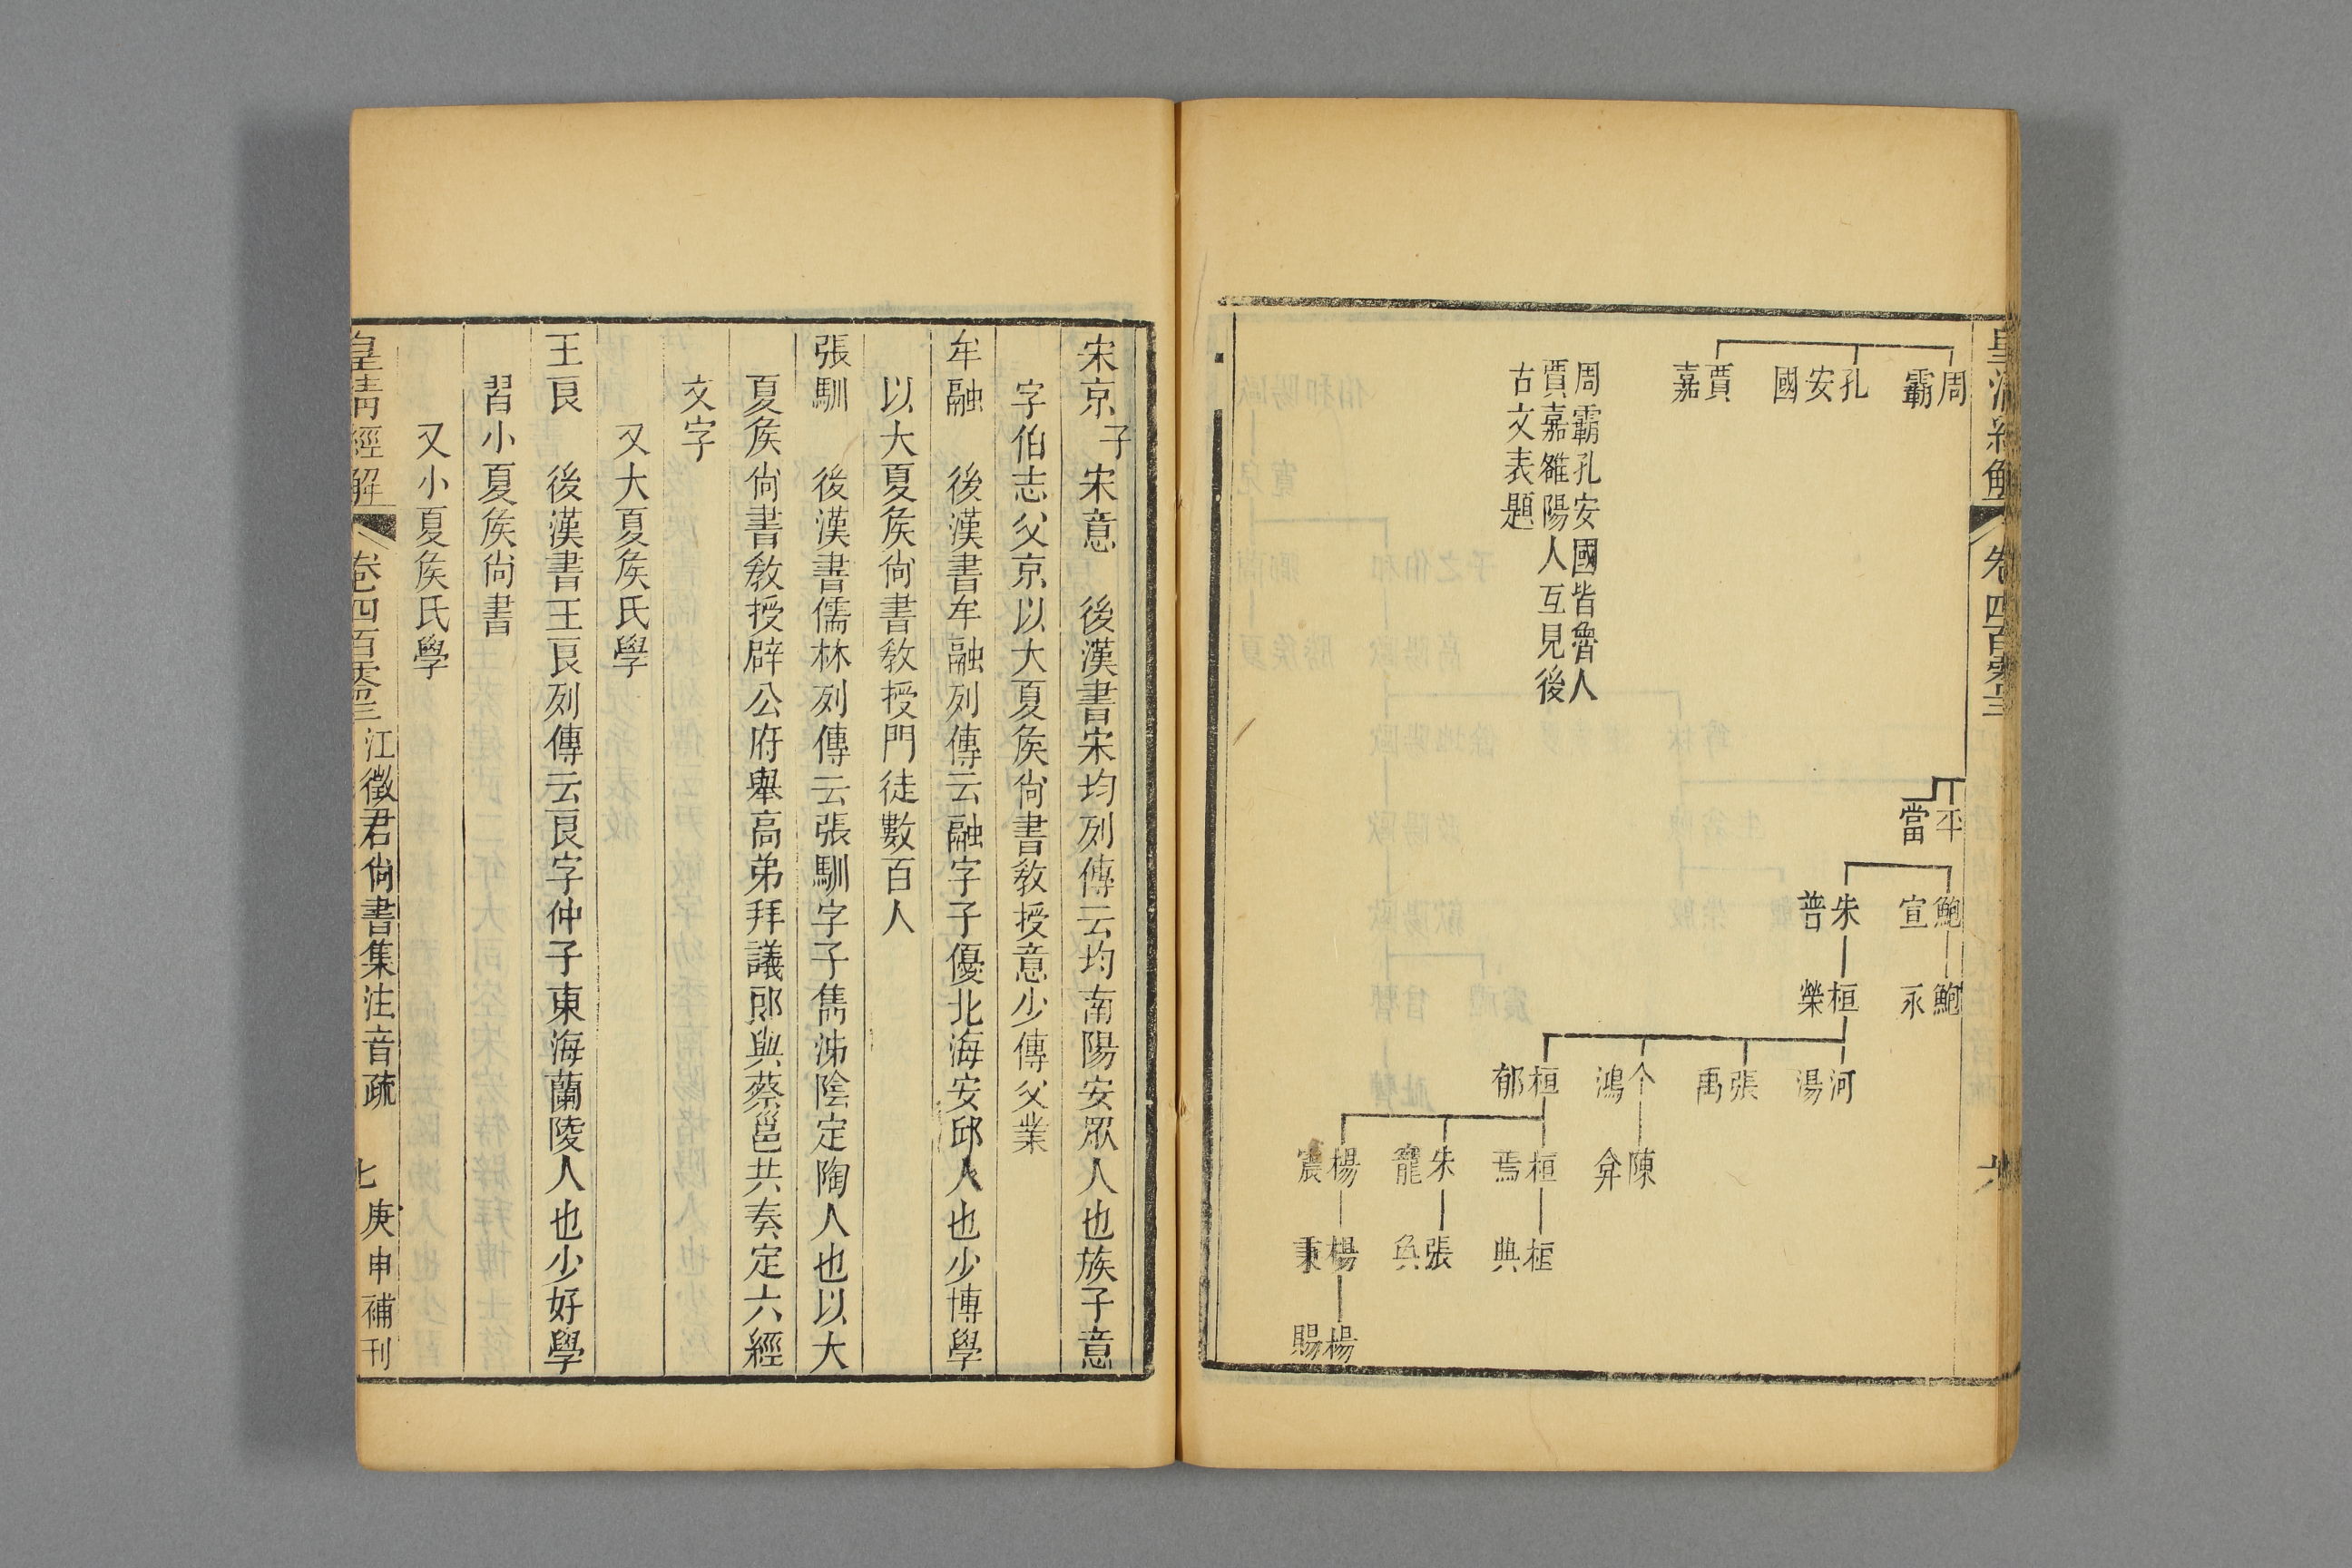 皇清經解 卷四百零三
周霸
孔安國
賈嘉
周霸孔安國皆魯人
賈嘉雒陽人互見後
古文表題
平當
鮑宣
朱普
鮑永
桓榮
何湯
張禹
鴻
桓郁
陳弇
桓焉
朱寵
楊震
桓典
張奐
楊秉
楊賜
宋京 子宋意 後漢書宋均列傳云均南陽安眾人也族子意
字伯志父京以大夏矦尙書教授意少傳父業
牟融 後漢書牟融列傳云融字子優北海安邱人也少博學
以大夏矦尙書教授門徒數百人
張馴 後漢書儒林列傳云張馴字子儁泲陰定陶人也以大
夏矦尙書教授辟公府舉高弟拜議郎與蔡邕共奏定六經
文字
又大夏矦氏學
王良 後漢書王良列傳云良字仲子東海蘭陵人也少好學
習小夏矦尙書
又小夏矦氏學
皇清經解 卷四百零三 江徵君尙書集注音疏 七 庚申補刊